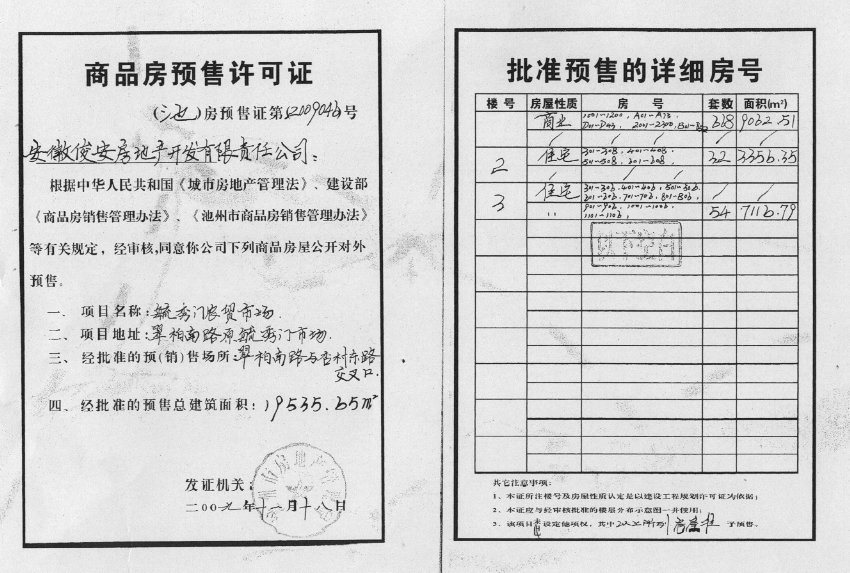 商品房预售许可证
(池)房预售证第2009046号
安徽俊安房地产开发有限责任公司:
根据中华人民共和国《城市房地产管理法》、建设部
《商品房销售管理办法》、《池州市商品房销售管理办法》
等有关规定,经审核,同意你公司下列商品房屋公开对外
预售。
一、项目名称:毓秀门农贸市场.
二、项目地址:翠柏南路原毓秀门市场.
三、经批准的预(销)售场所:翠柏南路与杏村东路
交叉口.
四、经批准的预售总建筑面积:19535.65m²
发证机关:
二00九年十一月十八日
批准预售的详细房号
楼号 房屋性质 房号 套数 面积(m²)
商业 1001-1200, A01-A73. 9062.51
D01-D43, 2001-2300,
2 住宅 301-308, 401-408, 32 3356.35
501-508, 201-208,
3 住宅 301-306, 401-406, 501-506
601-606, 701-706, 801-806,
〃 901-906, 1001-1006, 54 7116.79
1101-1106,
以下空白
其它注意事项:
1、本证所注楼号及房屋性质认定是以建设工程规划许可证为依据;
2、本证应与经审核批准的楼层分布示意图一并使用;
3、该项目未设定他项权,其中 予预售。